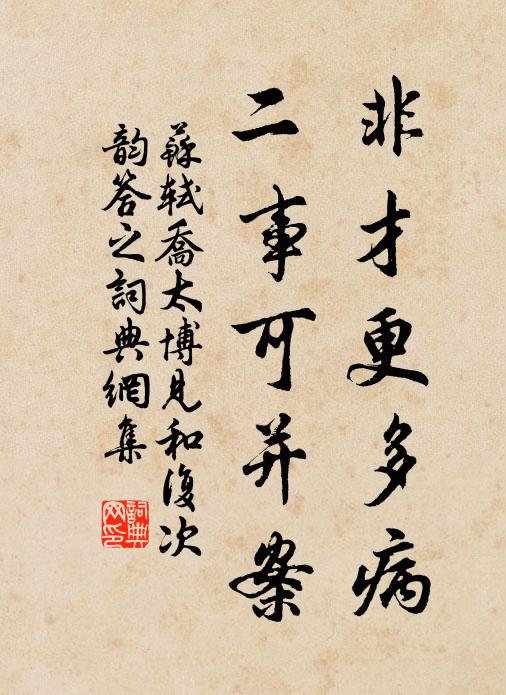 非才更多病
二事可并案
蘇軾喬太博見和復次
韵答之詞典網集
詞典网印